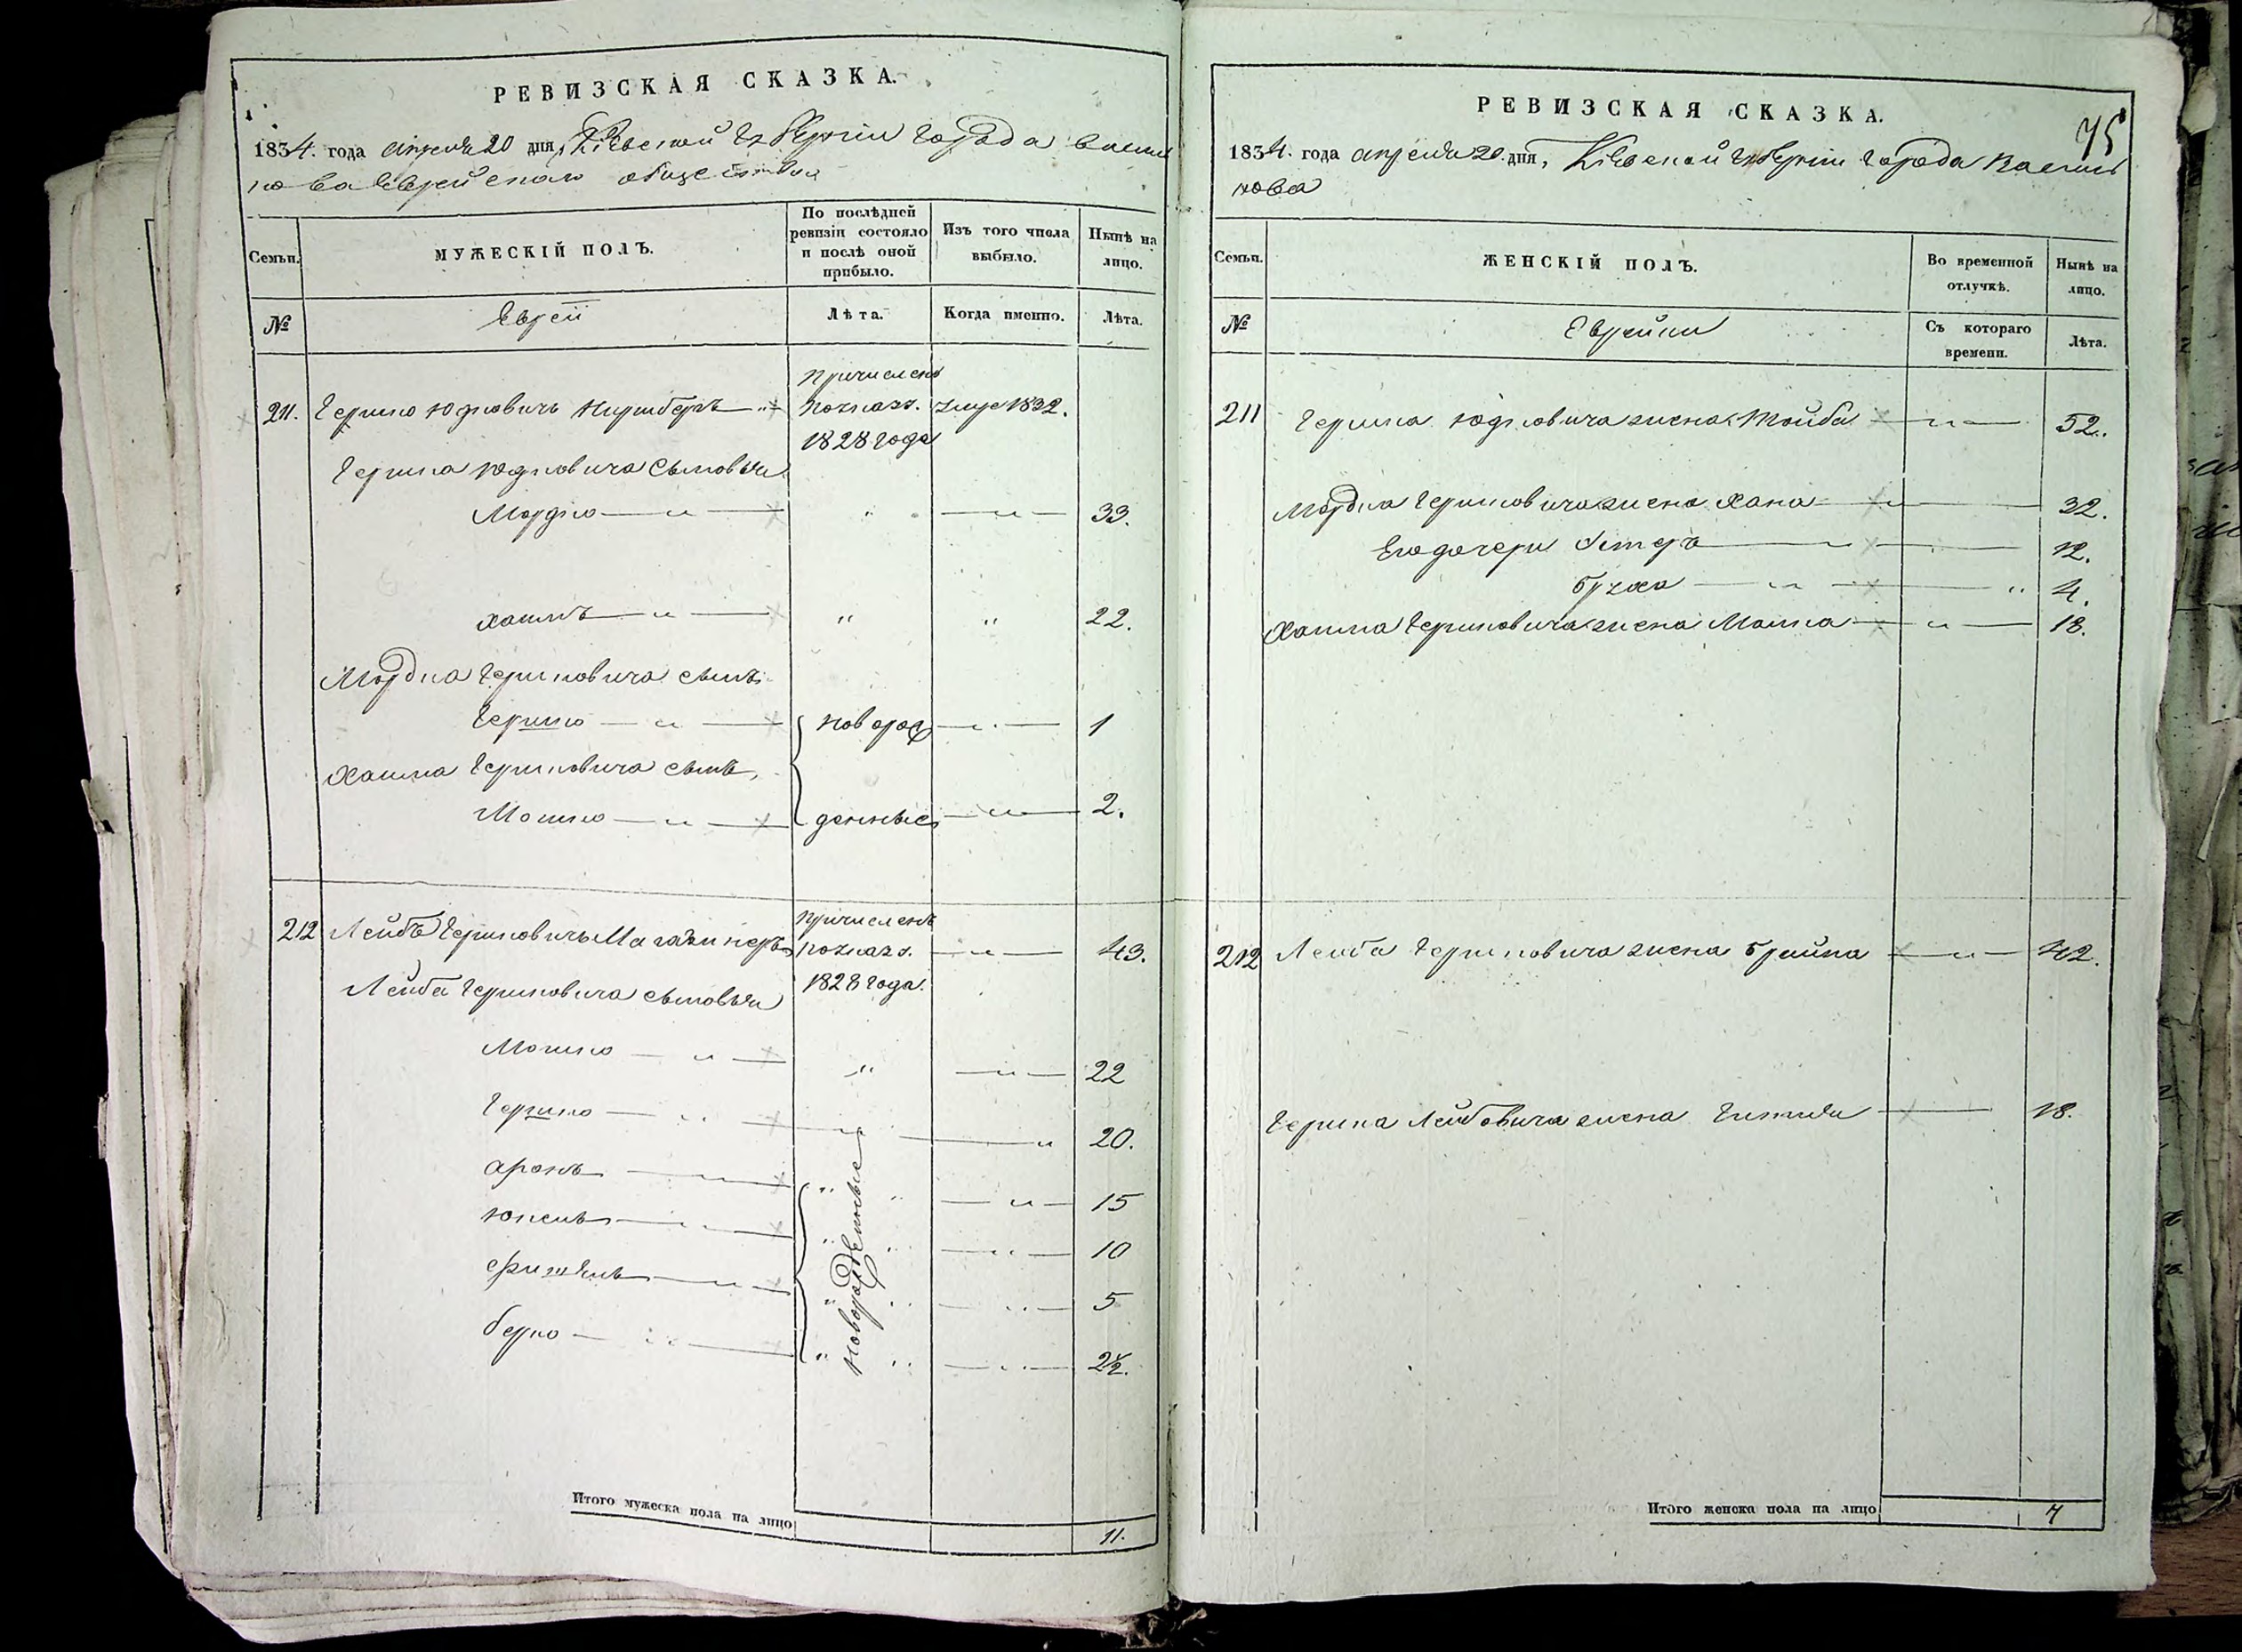 РЕВИЗСКАЯ СКАЗКА.
1834. года апреля 20 дня, Кіевской Губерніи города Василь
кова Еврейскаго общества
Семьи.
МУЖЕСКІЙ ПОЛЪ.
По послѣдней ревизіи состояло и послѣ оной прибыло.
Изъ того числа выбыло.
Нынѣ на лицо.
№
Евреи
Лѣта.
Когда именно.
Лѣта.
Причисленъ
211. Гершко Юдковичъ
по указ. умре 1832.
1828 года
Гершка Юдковича сыновья
Мордко 33.
Хаимъ 22.
Мордка Гершковича сынъ
Гершко новорож 1
Хаима Гершковича сынъ
Мошко денные 2.
Причисленъ
212 Лейбъ Гершковичъ Магазинеръ по указ. 43.
Лейба Гершковича сыновья 1828 года.
Мошко 22
Гершко 20.
Аронъ 15
Юкель 10
Фишель 5
Берко 2½.
Новорожденные
Итого мужеска пола на лицо 11.
РЕВИЗСКАЯ СКАЗКА.
75
1834. года апреля 20. дня, Кіевской Губерніи города Василь
кова
Семьи.
ЖЕНСКІЙ ПОЛЪ.
Во временной отлучкѣ.
Нынѣ на лицо.
№
Еврейки
Съ котораго времени.
Лѣта.
211 Гершка Юдковича жена Тойба 52.
Мордка Гершковича жена Хана 32.
Его дочери Естеръ 12.
Бруха 4.
Хаима Гершковича жена 18.
212 Лейба Гершковича жена Брайна 42.
Гершка Лейбовича жена Гитля 18.
Итого женска пола на лицо 7